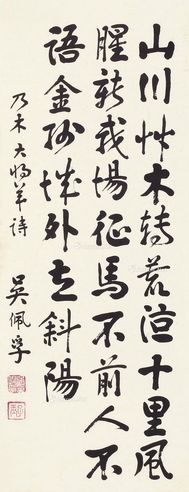 山川艸木轉荒涼十里風
腥新戰場征馬不前人不
語金州城外立斜陽
乃木大將軍詩
吳佩孚